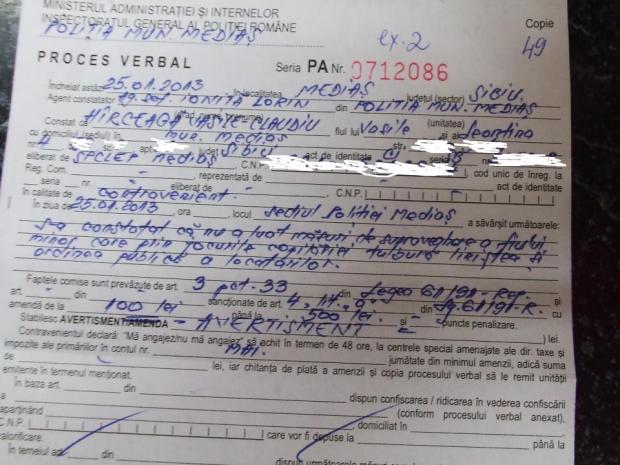 MINISTERUL ADMINISTRAŢIEI ŞI INTERNELOR
INSPECTORATUL GENERAL AL POLIŢIEI ROMÂNE
POLIŢIA MUN. MEDIAŞ
Copie
ex. 2
49
PROCES VERBAL
Seria PA Nr. 0712086
Încheiat astăzi 25.01.2013 în localitatea MEDIAŞ judeţul (sector) SIBIU
Agent constatator IONIŢA LORIN din POLIŢIA MUN. MEDIAŞ
(unitatea)
Constat că MIRCEAGA CLAUDIU fiul lui Vasile şi al Leontina
cu domiciliul (sediul) în mun. Mediaş str.
nr. 4 sc. apt. judeţ Sibiu act de identitate CI seria nr.
eliberat de SPCLEP Mediaş C.N.P. cod unic de înreg. la
Reg. Com. reprezentată de act de identitate
seria nr. eliberat de C.N.P.
în calitate de contravenient
în ziua de 25.01.2013, ora , locul sediul Poliţiei Mediaş a săvârşit următoarele:
S-a constatat că nu a luat măsuri de supraveghere a fiului
minor care prin jocurile copilăriei tulbură liniştea şi
ordinea publică a locatarilor.
Faptele comise sunt prevăzute de art. 3 pct. 33 din Legea 61/91-Rep. şi
art. sancţionate de art. 4, din Lg. 61/91-R. cu
amendă de la 100 lei până la 500 lei şi puncte penalizare.
Stabilesc AVERTISMENT/AMENDA - AVERTISMENT lei.
Contravenientul declară: "Mă angajez/nu mă angajez" să achit în termen de 48 ore, la centrele special amenajate ale dir. taxe şi
impozite ale primăriilor în contul nr. jumătate din minimul amenzii, adică suma
de lei, iar chitanţa de plată a amenzii şi copia procesului verbal să le remit unităţii
emitente în termenul menţionat.
În baza art. din dispun confiscarea / ridicarea în vederea confiscării
a (conform procesului verbal anexat),
aparţinând domiciliat în
C.N.P. care vor fi depuse la până la
valorificare.
În temeiul art. din dispun următoarele